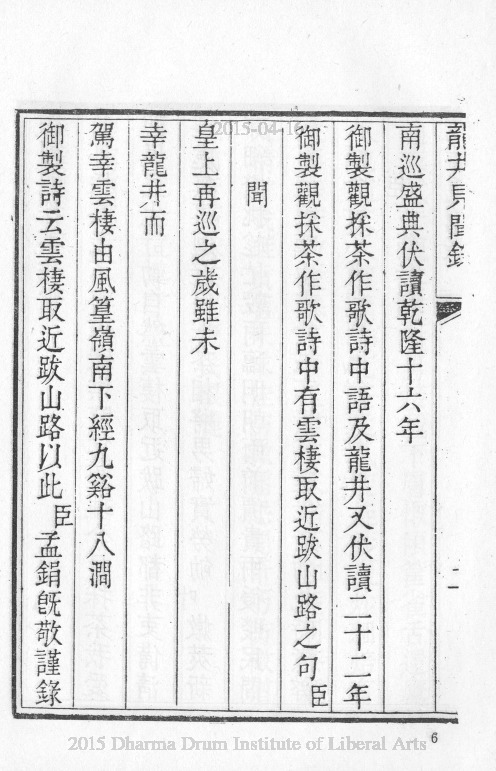 龍井見聞錄
二
南巡盛典伏讀乾隆十六年
御製觀採茶作歌詩中語及龍井又伏讀二十二年
御製觀採茶作歌詩中有雲棲取近跋山路之句臣
聞
皇上再巡之歲雖未
幸龍井而
駕幸雲棲由風篁嶺南下經九谿十八澗
御製詩云雲棲取近跋山路以此臣孟鋗既敬謹錄
6
2015-04-16
2015 Dharma Drum Institute of Liberal Arts